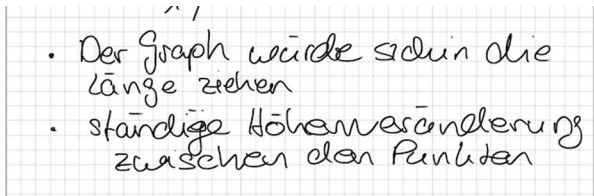 · Der Graph würde sich in die
Länge ziehen
· ständige Höhenveränderung
zwischen den Punkten